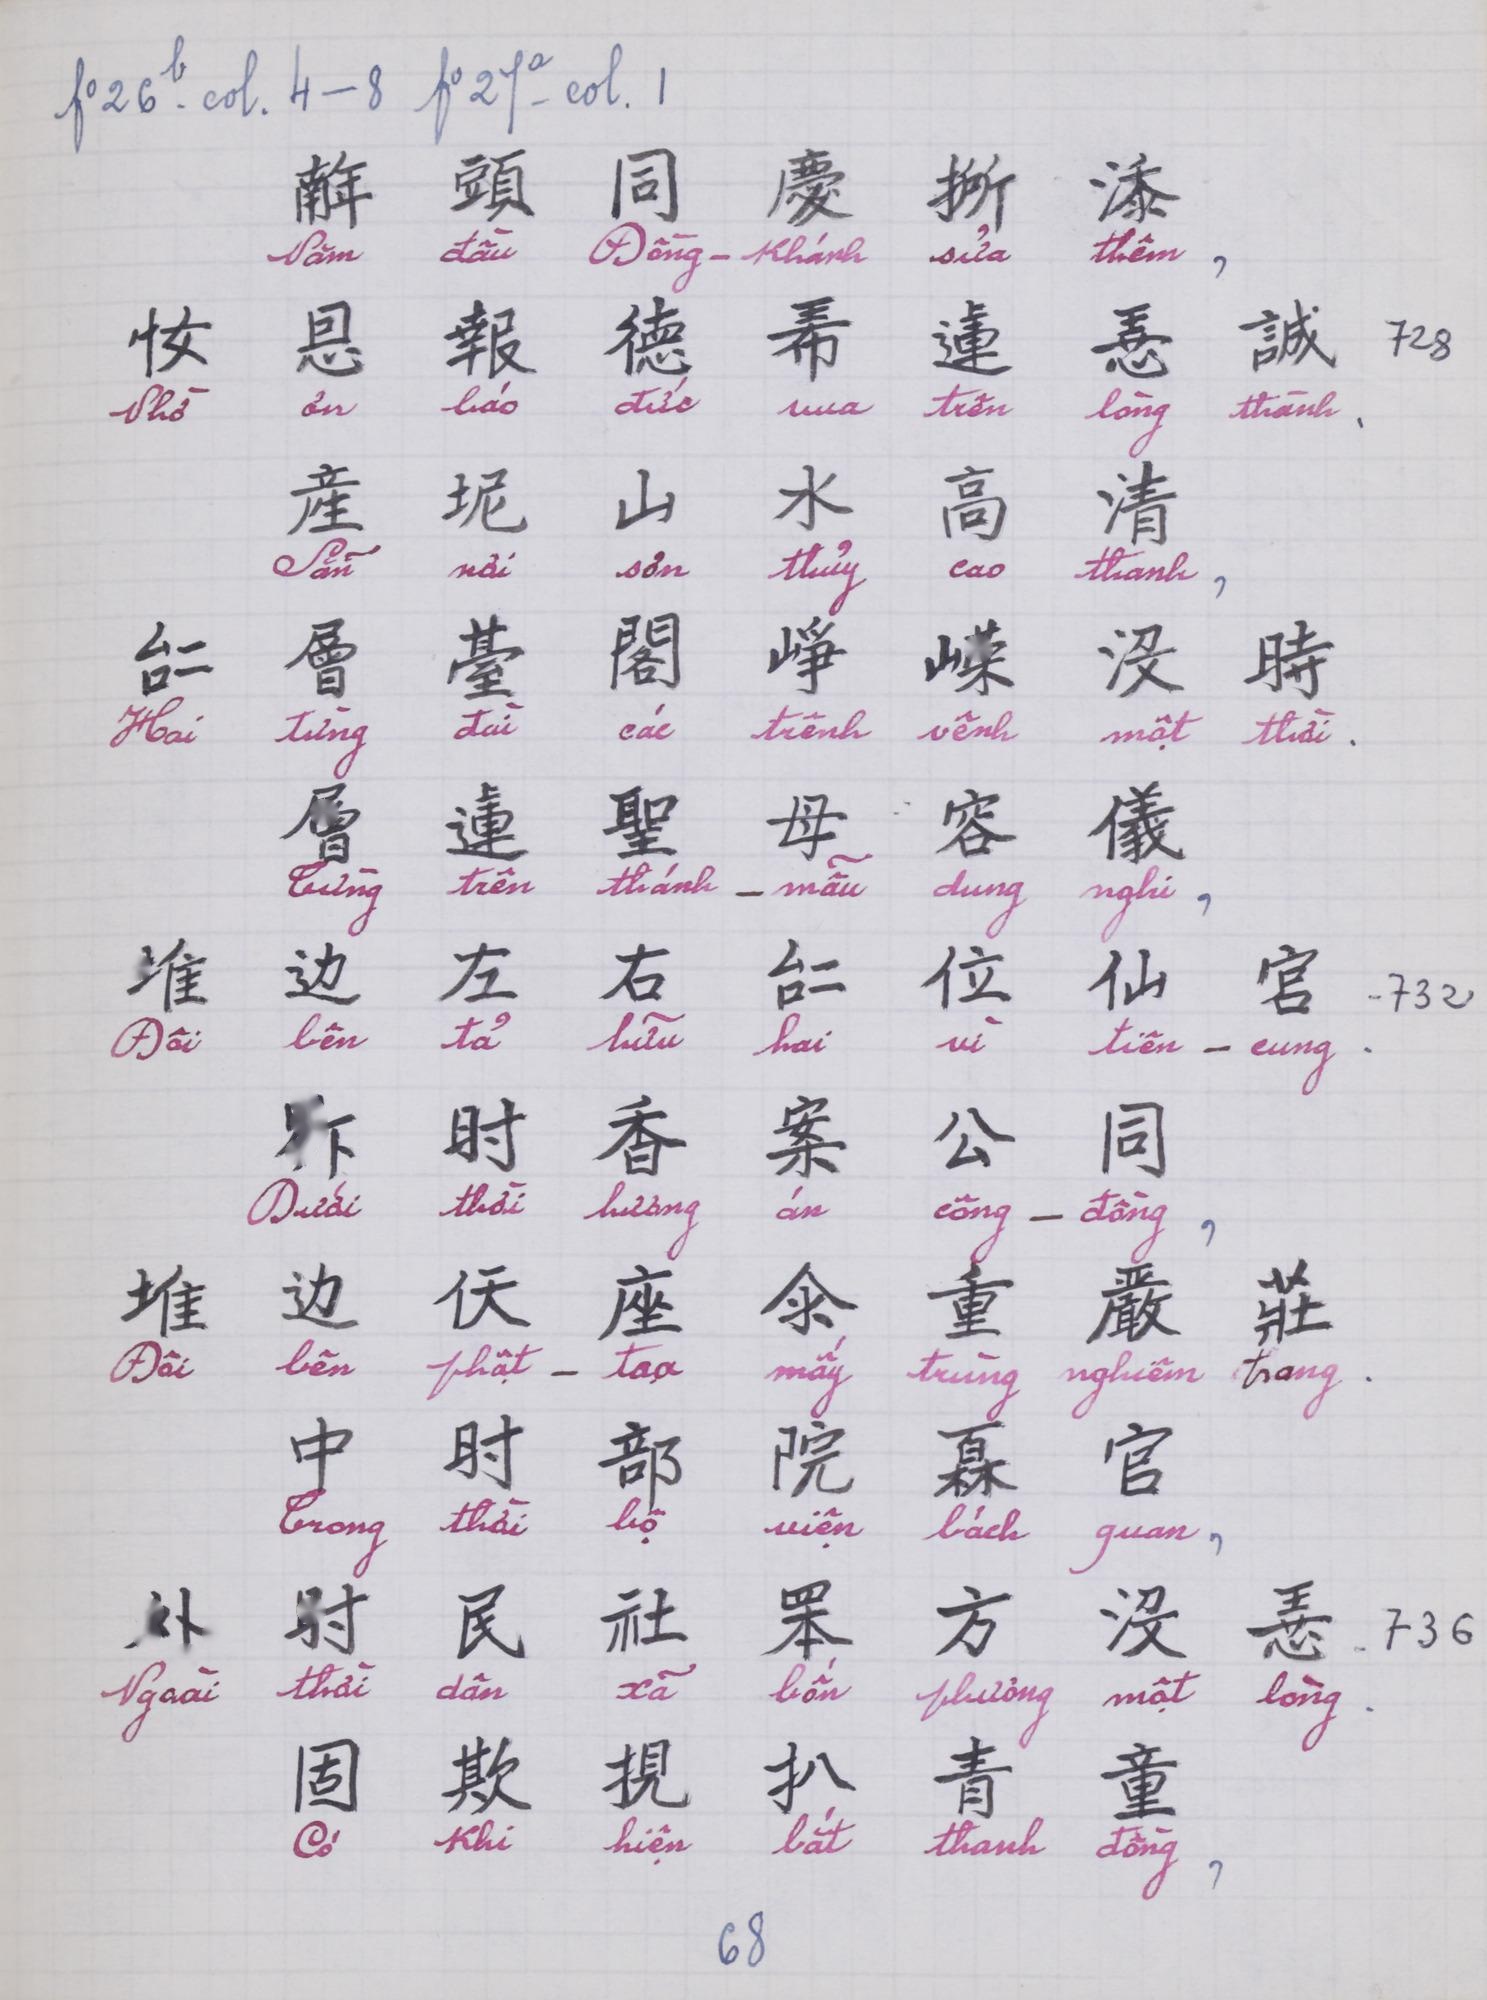 fo 26b - col. 4-8 fo 27a - col. 1
𢆥 頭 同 慶 𢵯 添
Năm đầu Đồng-Khánh sửa thêm,
𢖵 恩 報 德 𢂞 蓮 𢚸 誠 728
Nhớ ơn báo đức vua trên lòng thành.
産 坭 山 水 高 清
Sẵn nơi sơn thủy cao thanh,
𠄩 層 臺 閣 崢 嶸 没 時
Hai từng đài các trênh vênh một thời.
層 蓮 聖 母 容 儀
Từng trên thánh-mẫu dung nghi,
堆 边 左 右 𠄩 位 仙 官 -732
Đôi bên tả hữu hai vì tiên-cung.
𨑜 时 香 案 公 同
Dưới thời hương án công-đồng,
堆 边 伏 座 氽 重 嚴 莊
Đôi bên phật-toạ mấy trùng nghiêm trang.
中 时 部 院 𤾓 官
Trong thời bộ viện bách quan,
外 时 民 社 𦊚 方 没 𢚸 -736
Ngoài thời dân xã bốn phương một lòng.
固 欺 挸 扒 青 童
Có khi hiện bắt thanh đồng,
68